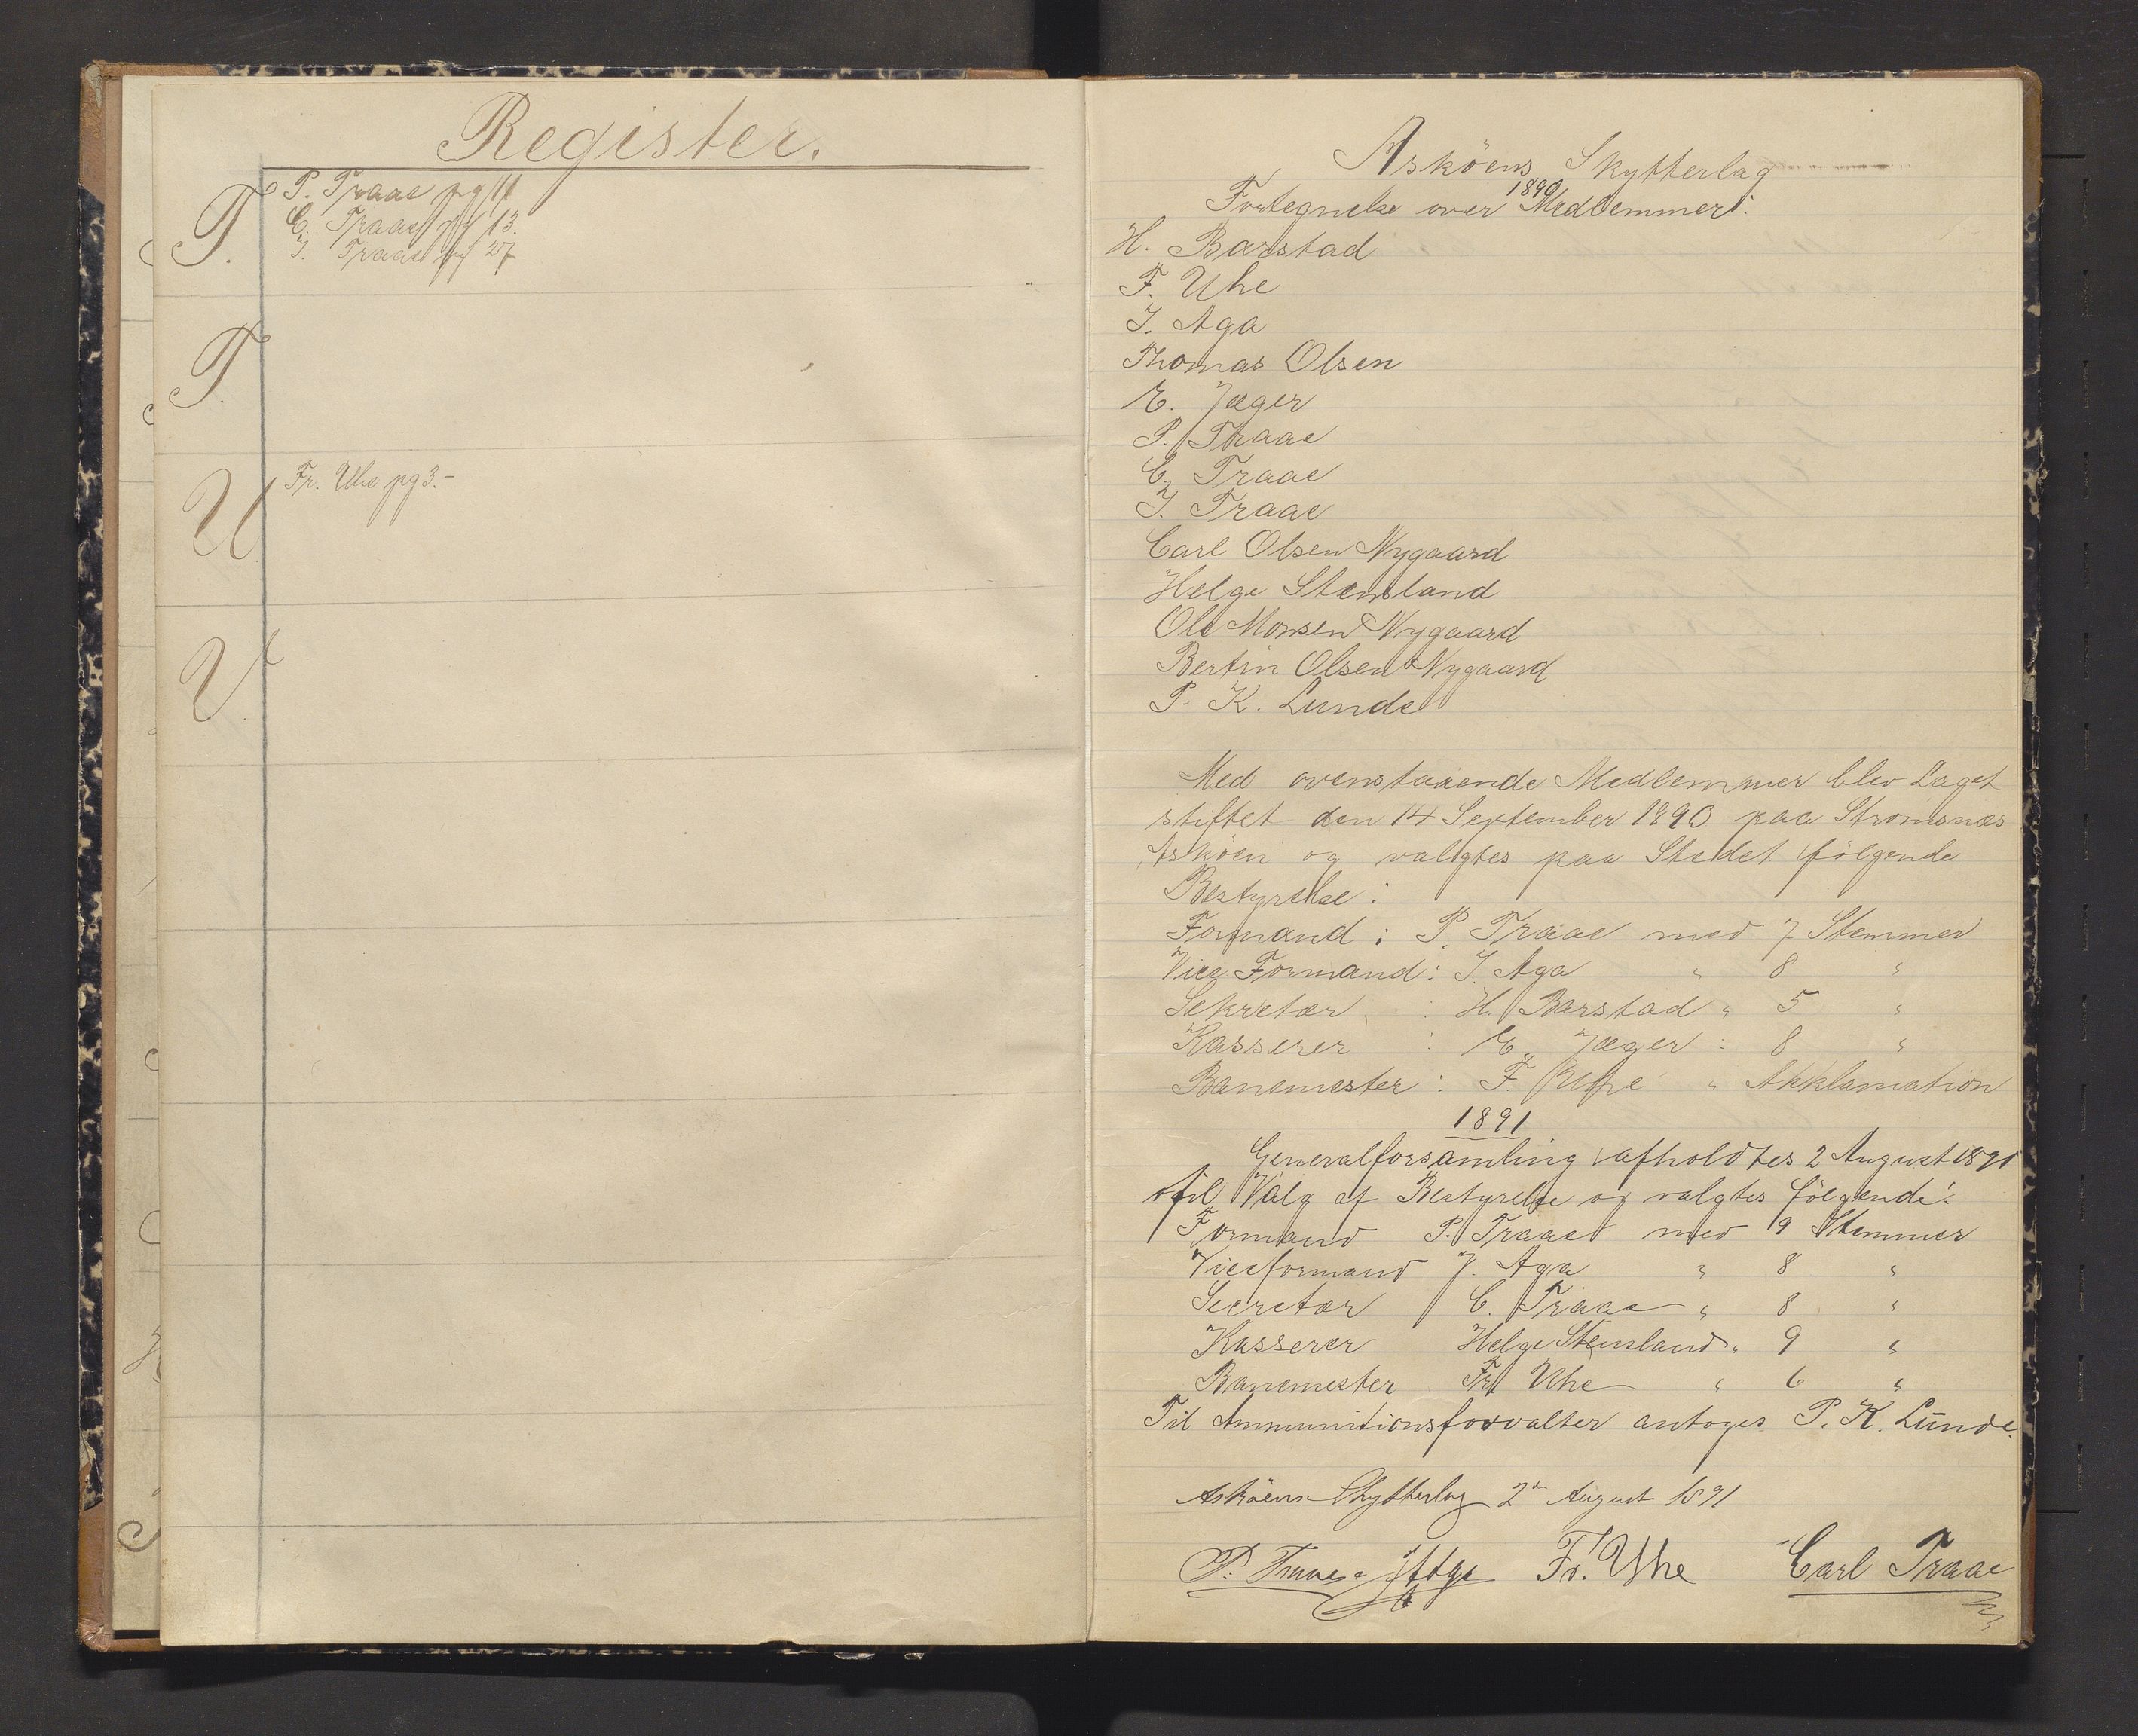 Register.
T. P. Traae pg 11
C. Traae pg 13.
J. Traae pg 27
T.
U Fr. Uhe pg 3.-
V
Asköens Skytterlag
1890
Fortegnelse over Medlemmer:
H. Barstad
F. Uhe
J. Aga
Thomas Olsen
E. Jæger
P. Traae
C. Traae
J. Traae
Carl Olsen Nygaard
Helge Stensland
Ole Monsen Nygaard
Bertin Olsen Nygaard
P. K. Lunde
Med ovenstaaende Medlemmer blev Laget
stiftet den 14 September 1890 paa Strømsnæs
Asköen og valgtes paa Stedet følgende
Bestyrelse:
Formand: P. Traae med 7 Stemmer
Vice Formand: J. Aga " 8 "
Sekretær : H. Barstad " 5 "
Kasserer : E. Jæger : 8 "
Banemester: F. Uhe " Akklamation
1891
Generalforsamling afholdtes 2 August 1891
til Valg af Bestyrelse og valgtes følgende:
Formand P. Traae med 9 Stemmer
Viceformand J. Aga " 8 "
Secretær C. Traae " 8 "
Kasserer Helge Stensland " 9 "
Banemester Fr. Uhe " 6 "
Til Ammunitionsforvalter antoges P. K. Lunde.
Asköens Skytterlag 2den August 1891
P. Traae J Aga Fr. Uhe Carl Traae